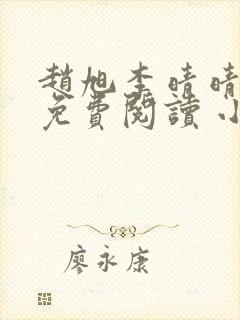 趙旭李晴晴
免費閱讀小
廖永康